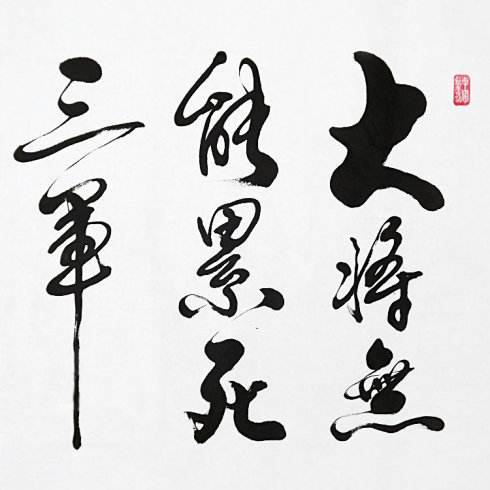 大将無
能累死
三軍